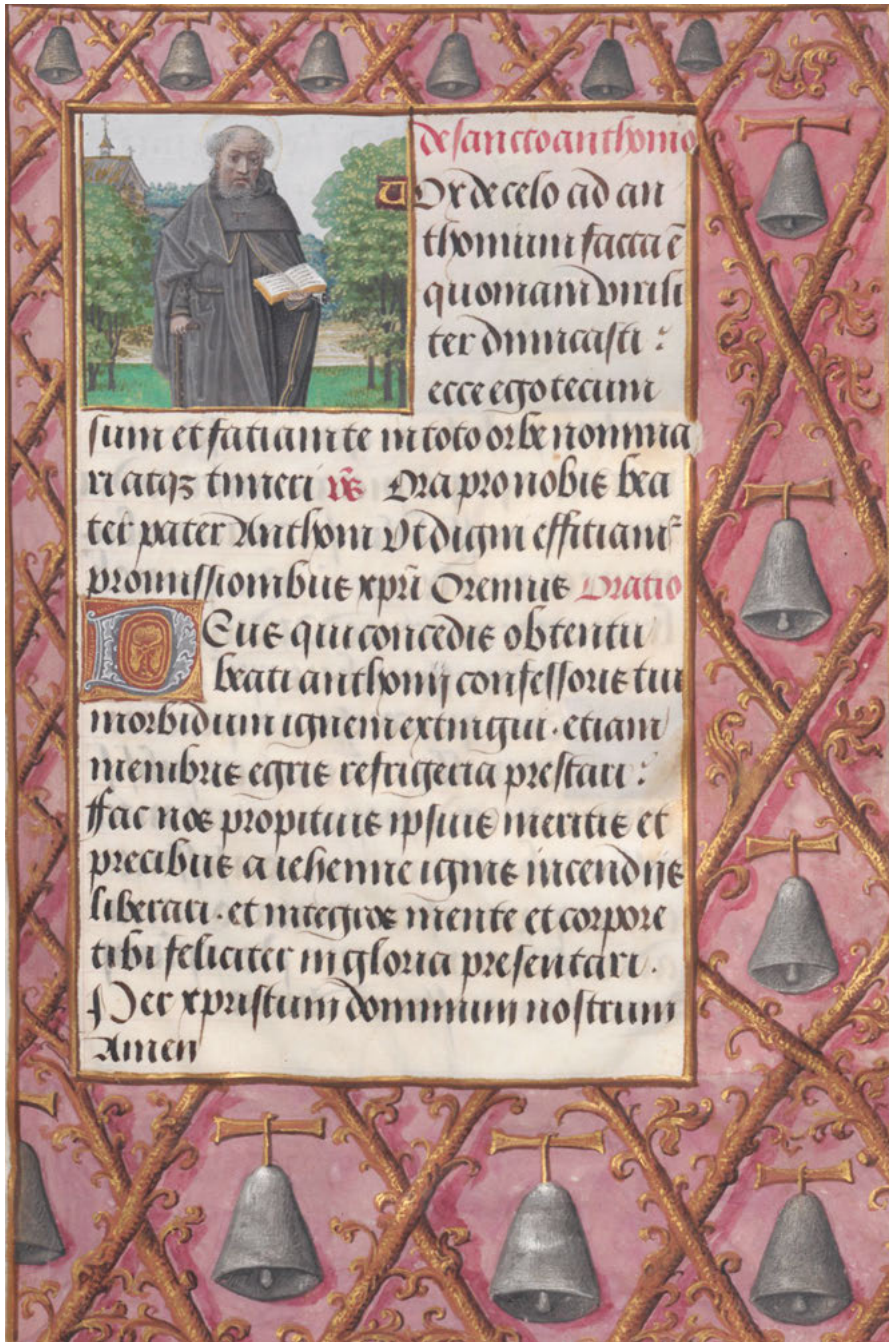 de sancto anthonio
Vox de celo ad an
thonium facta ē
quoniam virili
ter dimicasti :
ecce ego tecum
sum et fatiam te in toto orbe nomina
ri atqꝫ timeri v̄s Ora pro nobis bea
ter pater Anthoni Vt digni effitiamr̃
promissionibus xpr̄i Oremus Oratio
Deus qui concedis obtentu
beati anthonij confessoris tui
morbidum ignem extingui · etiam
membris egris refrigeria prestari :
ffac nos propitius ipsius meritis et
precibus a iehenne ignis incendijs
liberari · et integros mente et corpore
tibi feliciter in gloria presentari ·
Per xpristum dominum nostrum
Amen